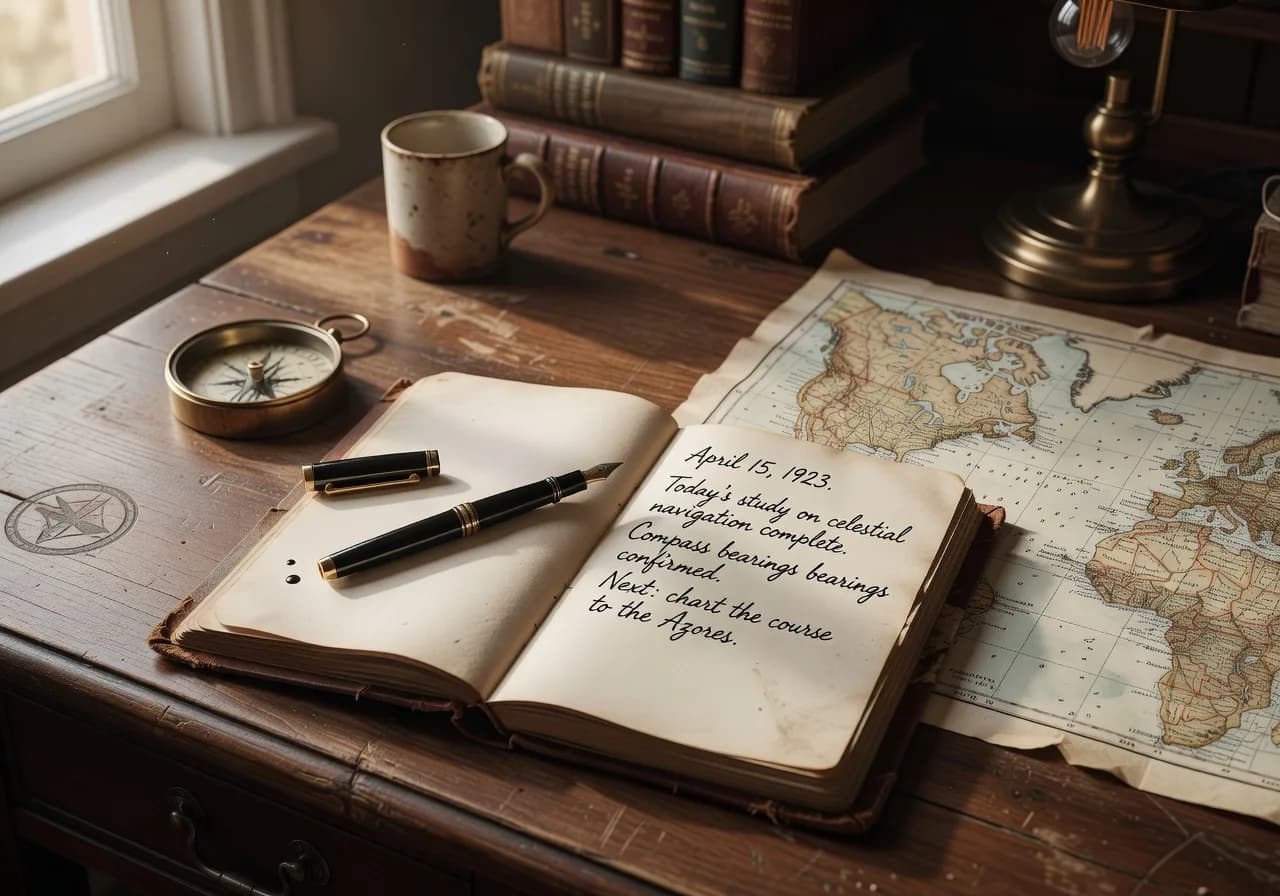 April 15, 1923.
Today's study on celestial
navigation complete.
Compass bearings bearings
confirmed.
Next: chart the course
to the Azores.